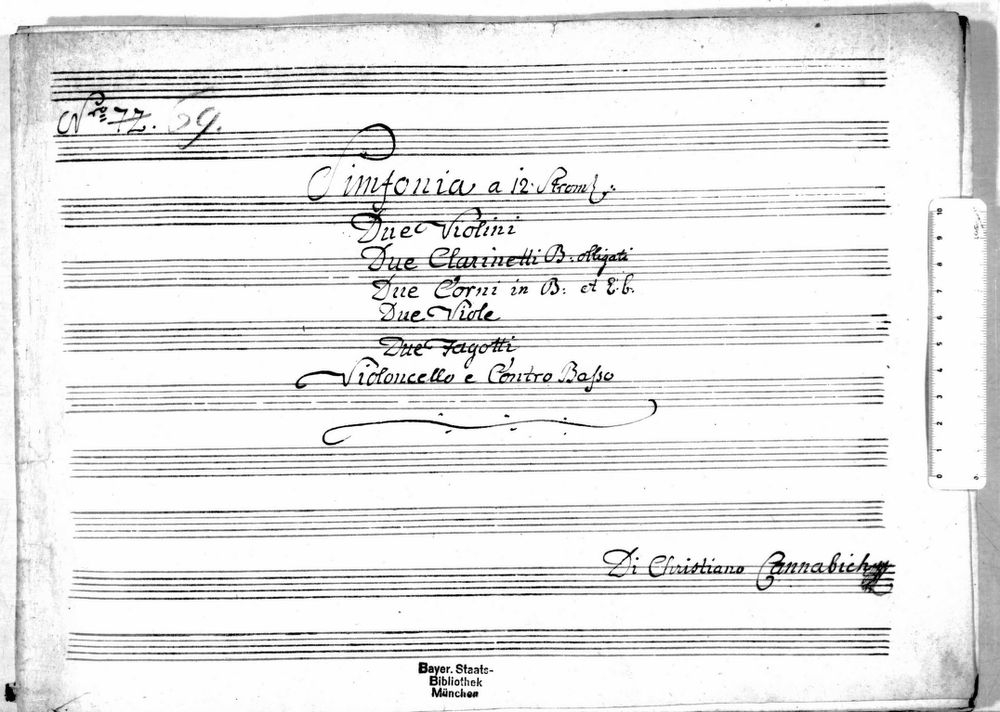 Nro 72. 59.
Simfonia a 12. Strom:
Due Violini
Due Clarinetti B: obligati
Due Corni in B: et E:b.
Due Viole
Due Fagotti
Violoncello e Contro Basso
Di Christiano Cannabich
Bayer. Staats-
Bibliothek
München
10
9
8
7
6
5
4
3
2
1
0